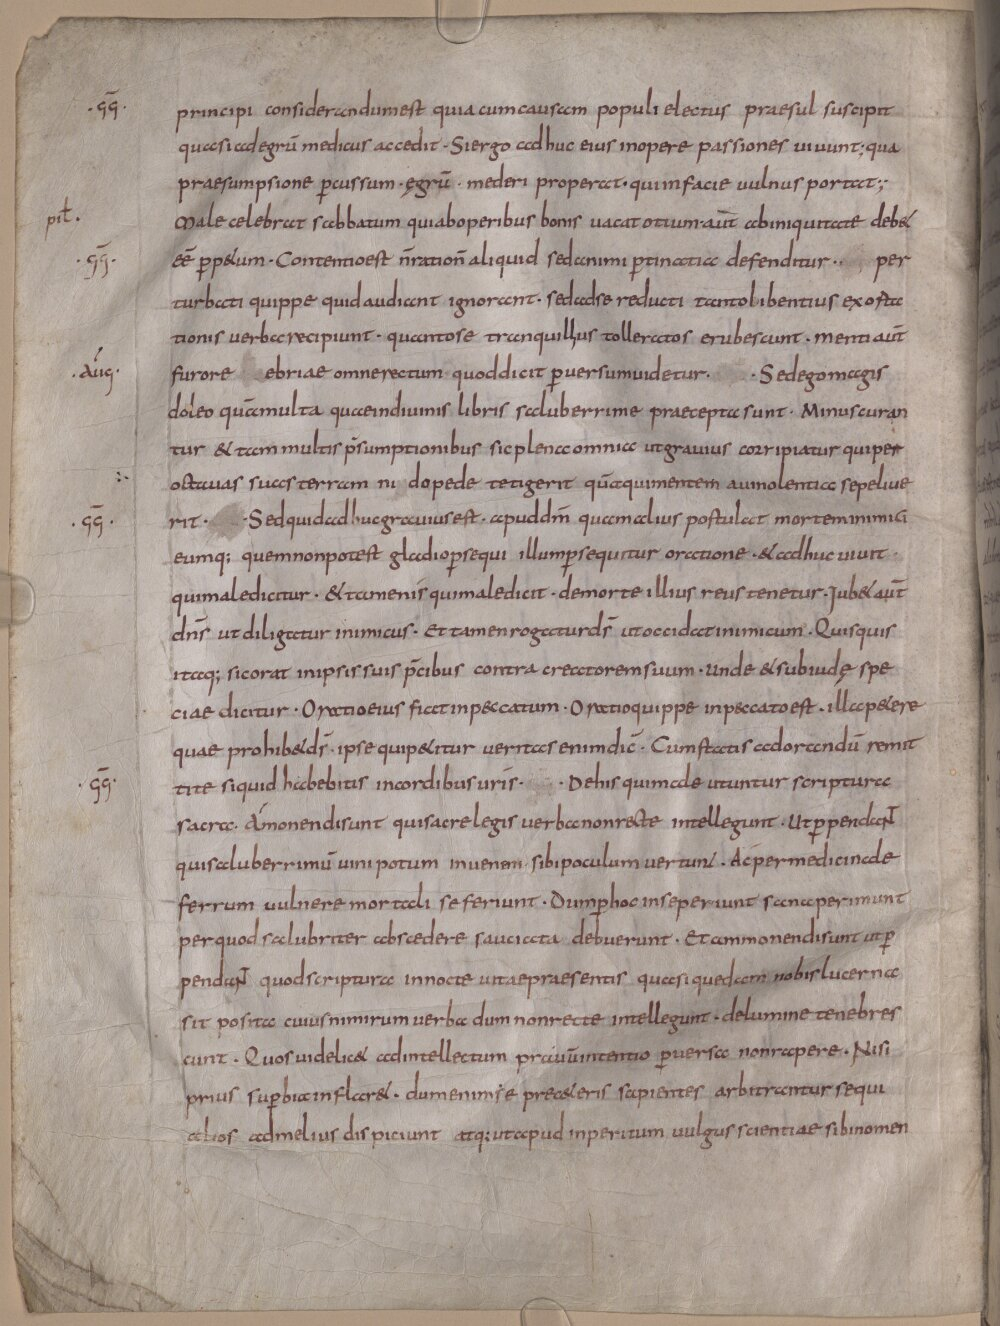 ·gḡ· principi considerandum est quia cum causam populi electus praesul suscipit
quasi ad egrū medicus accedit · Si ergo adhuc eius in opere passiones uiuunt; qua
praesumpsione p̄cussum · ęgrū · mederi properat · qui in facie uulnus portat;
pił. Male celebrat sabbatum qui ab operibus bonis uacat otium aūt ab iniquitate deb&
·gḡ· eē p̄p&uum · Contentio est n̄ ration̄ aliquid sed animi p̄tinatia defenditur ·· per
turbati quippe quid audiant ignorant · sed ad se reducti tanto libentius exorta
tionis uerba recipiunt · quanto se tranquillius tolleratos erubescunt · menti aūt
·Aug· furore ebriae omne rectum quod dicit p̄uersum uidetur · · Sed ego magis
doleo quā multa quae in diuinis libris saluberrime praecepta sunt · Minus curan
tur & tam multis p̄sumptionibus sic plena omnia ut grauius corripiatur qui per
octauas suas terram nudo pede tetigerit quā qui mentem auinolentia sepelie
·gḡ· rit · · Sed quid adhuc grauius est · apud dm̄ quam alius postulat mortem inimici
eumq; quem non potest gladio p̄sequi illum p̄sequitur oratione · & adhuc uiuit ·
qui maledicitur · & tamen is qui maledicit · de morte illius reus tenetur · Iub& aūt
dn̄s ut diligatur inimicus · Et tamen rogatur ds̄ ut occidat inimicum · Quisquis
itaq; sic orat in ipsis suis p̄cibus contra creatorem suum · unde & sub iudę spe
ciae dicitur · Oratio eius fiat in peccatum · Oratio quippe in peccato est · illa p&ere
quae prohib& ds̄ · ipse qui p&itur ueritas enim dic̄ · Cum statis ad orandū remit
·gḡ· tite si quid habebitis in cordibus uris̄ · · De his qui male utuntur scriptura
sacra · Amonendi sunt qui sacre legis uerba non recte intellegunt · Ut p̄pendaN̄
qui saluberrimū uini potum in uenem sibi poculum uertunt · Ac per medicinale
ferrum uulnere mortali se feriunt · Dum p̄ hoc in se periunt sana perimunt
per quod salubriter abscedere sauciata debuerunt · Et ammonendi sunt ut p̄
pendaN̄ quod scriptura in nocte uitae praesentis quasi quedam nobis lucerna
sit posita cuius nimirum uerba dum non recte intellegunt · de lumine tenebres
cunt · Quos uidelic& ad intellectum prauū intentio p̄uersa non rapere · Nisi
prius sup̄bia inflar& · dum enim se prec&eris sapientes arbitrantur sequi
alios ad melius dispiciunt atq; ut apud inperitum uulgus scientiae sibi nomen